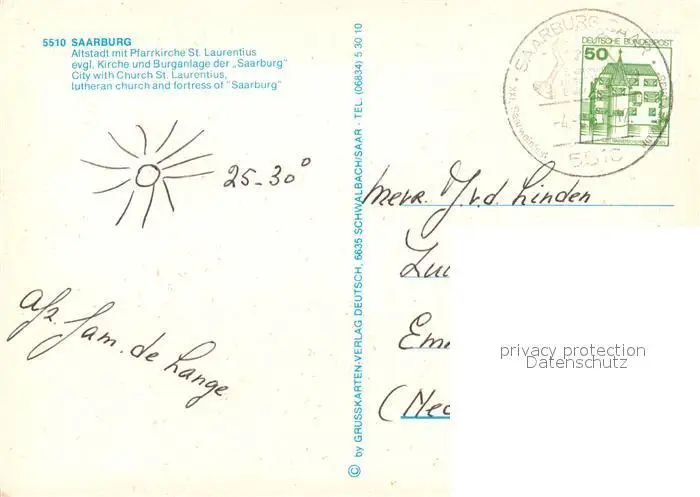 5510 SAARBURG
Altstadt mit Pfarrkirche St. Laurentius
evgl. Kirche und Burganlage der „Saarburg"
City with Church St. Laurentius,
lutheran church and fortress of "Saarburg"
25-30°
afz. fam. de Lange
© by GRUSSKARTEN-VERLAG DEUTSCH, 6635 SCHWALBACH/SAAR · TEL. (06834) 5 30 10
SAARBURG, SAAR
5510
DEUTSCHE BUNDESPOST
50
mevr. J. v.d. Linden
(Ned
privacy protection
Datenschutz